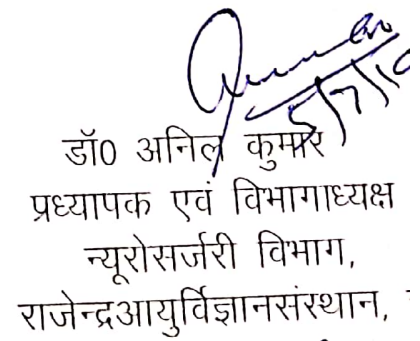 5/7/19
डॉ0 अनिल कुमार
प्रध्यापक एवं विभागाध्यक्ष
न्यूरोसर्जरी विभाग,
राजेन्द्रआयुर्विज्ञानसंस्थान,